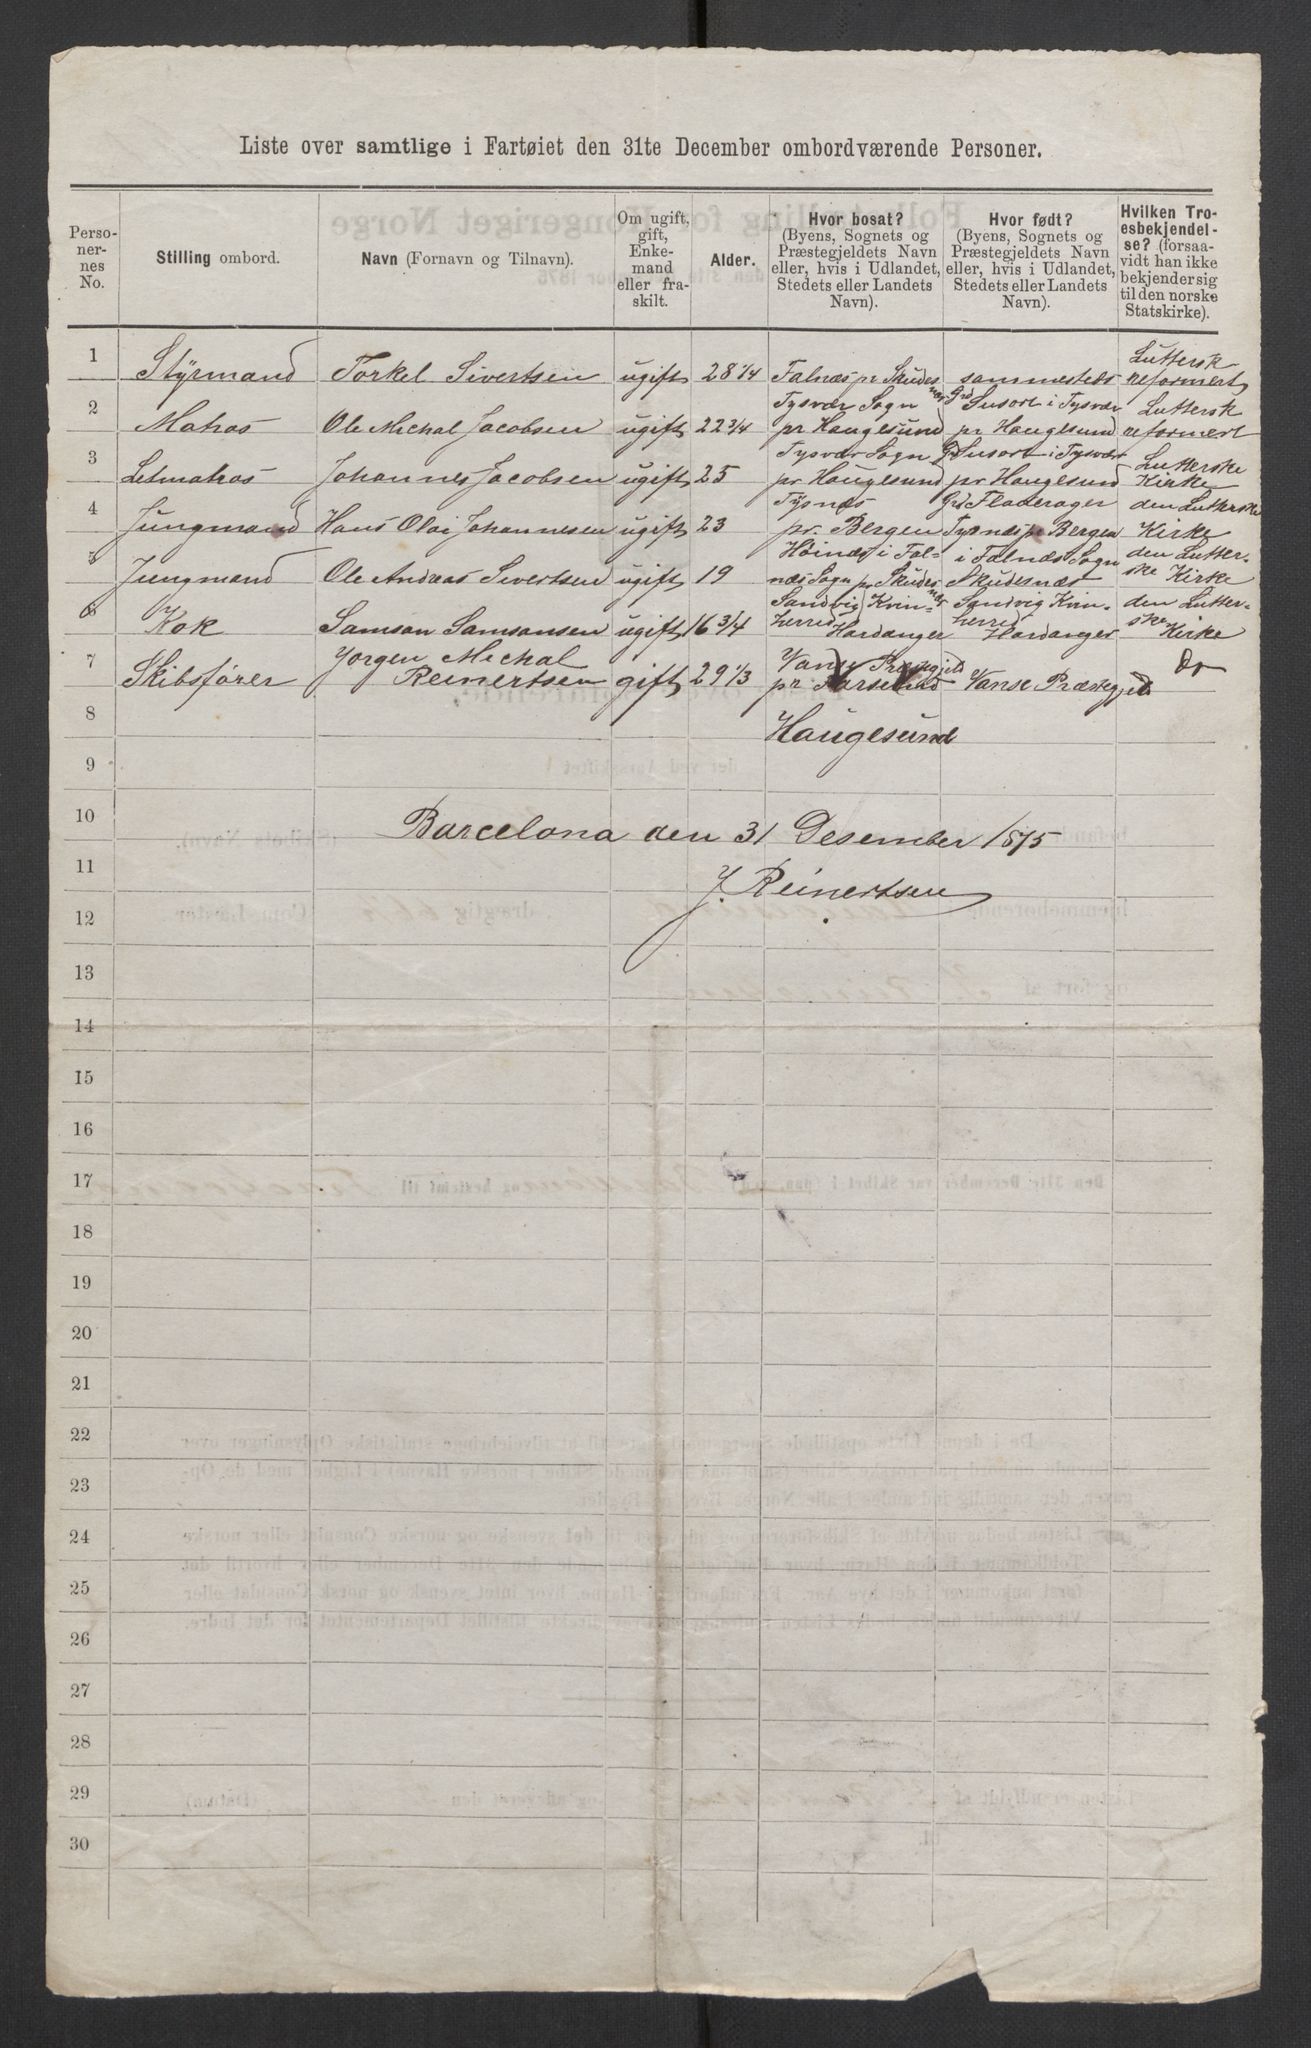 Liste over samtlige i Fartøiet den 31te December ombordværende Personer.
Perso-
ner-
nes
No.
Stilling ombord.
Navn (Fornavn og Tilnavn).
Om ugift,
gift,
Enke-
mand
eller fra-
skilt.
Alder.
Hvor bosat?
(Byens, Sognets og
Præstegjeldets Navn
eller, hvis i Udlandet,
Stedets eller Landets
Navn).
Hvor født?
(Byens, Sognets og
Præstegjeldets Navn
eller, hvis i Udlandet,
Stedets eller Landets
Navn).
Hvilken Tro-
esbekjendel-
se? (forsaa-
vidt han ikke
bekjender sig
til den norske
Statskirke).
1
Styrmand
Torkel Sivertsen
ugift
28 1/4
Falnæs pr Skudes
næs
sammesteds
Luttersk
reformert
2
Matros
Ole Michal Jacobsen
ugift
22 3/4
Tysvær Sogn
pr Haugesund
Grd Susort i Tysvær
pr Haugesund
Luttersk
reformert
3
Letmatros
Johannes Jacobsen
ugift
25
Tysvær Sogn
pr Haugesund
Gr Susort i Tysvær
pr Haugesund
Lutterske
Kirke
4
Jungmand
Hans Olai Johannesen
ugift
23
Tysnæs
pr. Bergen
Grd Fladerager
Tysnæs pr Bergen
den Lutterske
Kirke
5
Jungmand
Ole Andreas Sivertsen
ugift
19
Høinæs i Fal-
næs Sogn pr Skudes
næs
i Falnæs Sogn
Skudesnæs
den Lutter-
ske Kirke
6
Kok
Samson Samsonsen
ugift
16 3/4
Sandvig Kvin-
herred
Hardanger
Sandvig Kvin-
herred
Hardanger
den Lutter-
ske
Kirke
7
Skibsfører
Jorgen Michal
Reinertsen
gift
29 1/3
Vanse Præstgjeld
pr Farsund
Vanse Præstegjeld
Do
8
Haugesund
9
10
Barcelona den 31 Desember 1875
11
J. Reinertsen
12
13
14
15
16
17
18
19
20
21
22
23
24
25
26
27
28
29
30